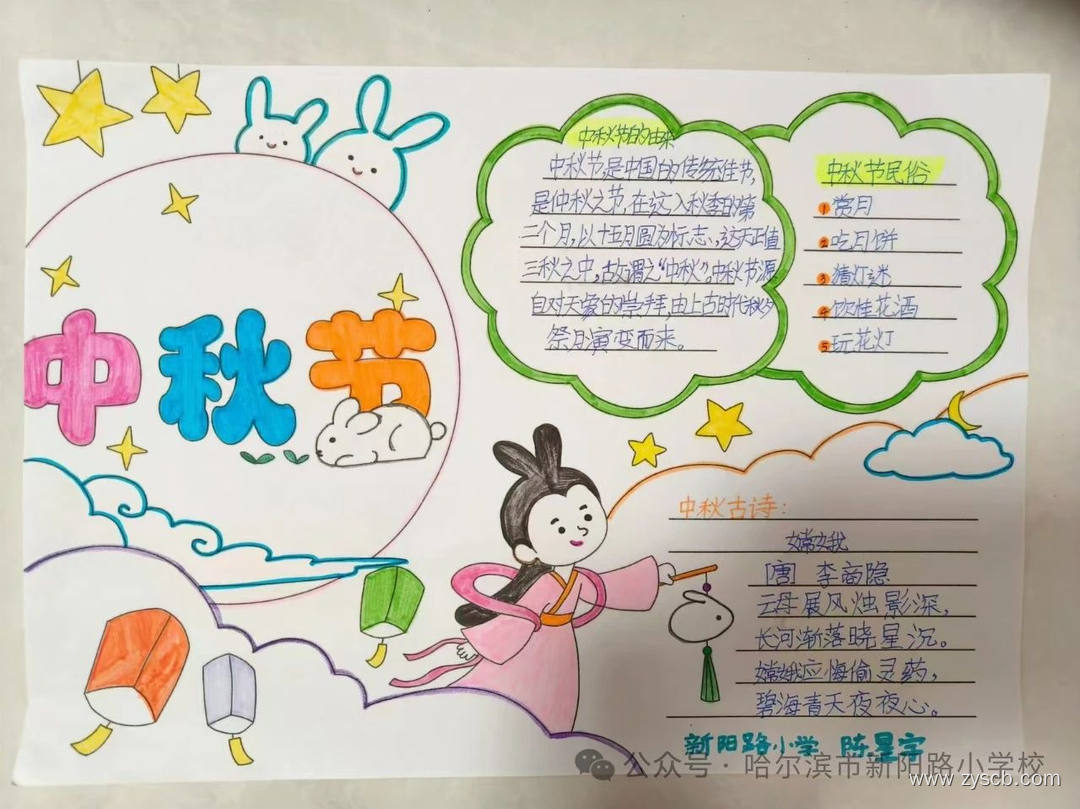 中秋节
中秋节的由来
中秋节,是中国的传统佳节,
是仲秋之节,在这入秋季的第
二个月,以十五月圆为标志,这天正值
三秋之中,故谓之“中秋”。中秋节源
自对天象的崇拜,由上古时代秋夕
祭月演变而来。
中秋节民俗
1 赏月
2 吃月饼
3 猜灯谜
4 饮桂花酒
5 玩花灯
中秋古诗:
嫦娥
[唐] 李商隐
云母屏风烛影深,
长河渐落晓星沉。
嫦娥应悔偷灵药,
碧海青天夜夜心。
新阳路小学 陈星宇
公众号·哈尔滨市新阳路小学校
www.zyscb.com